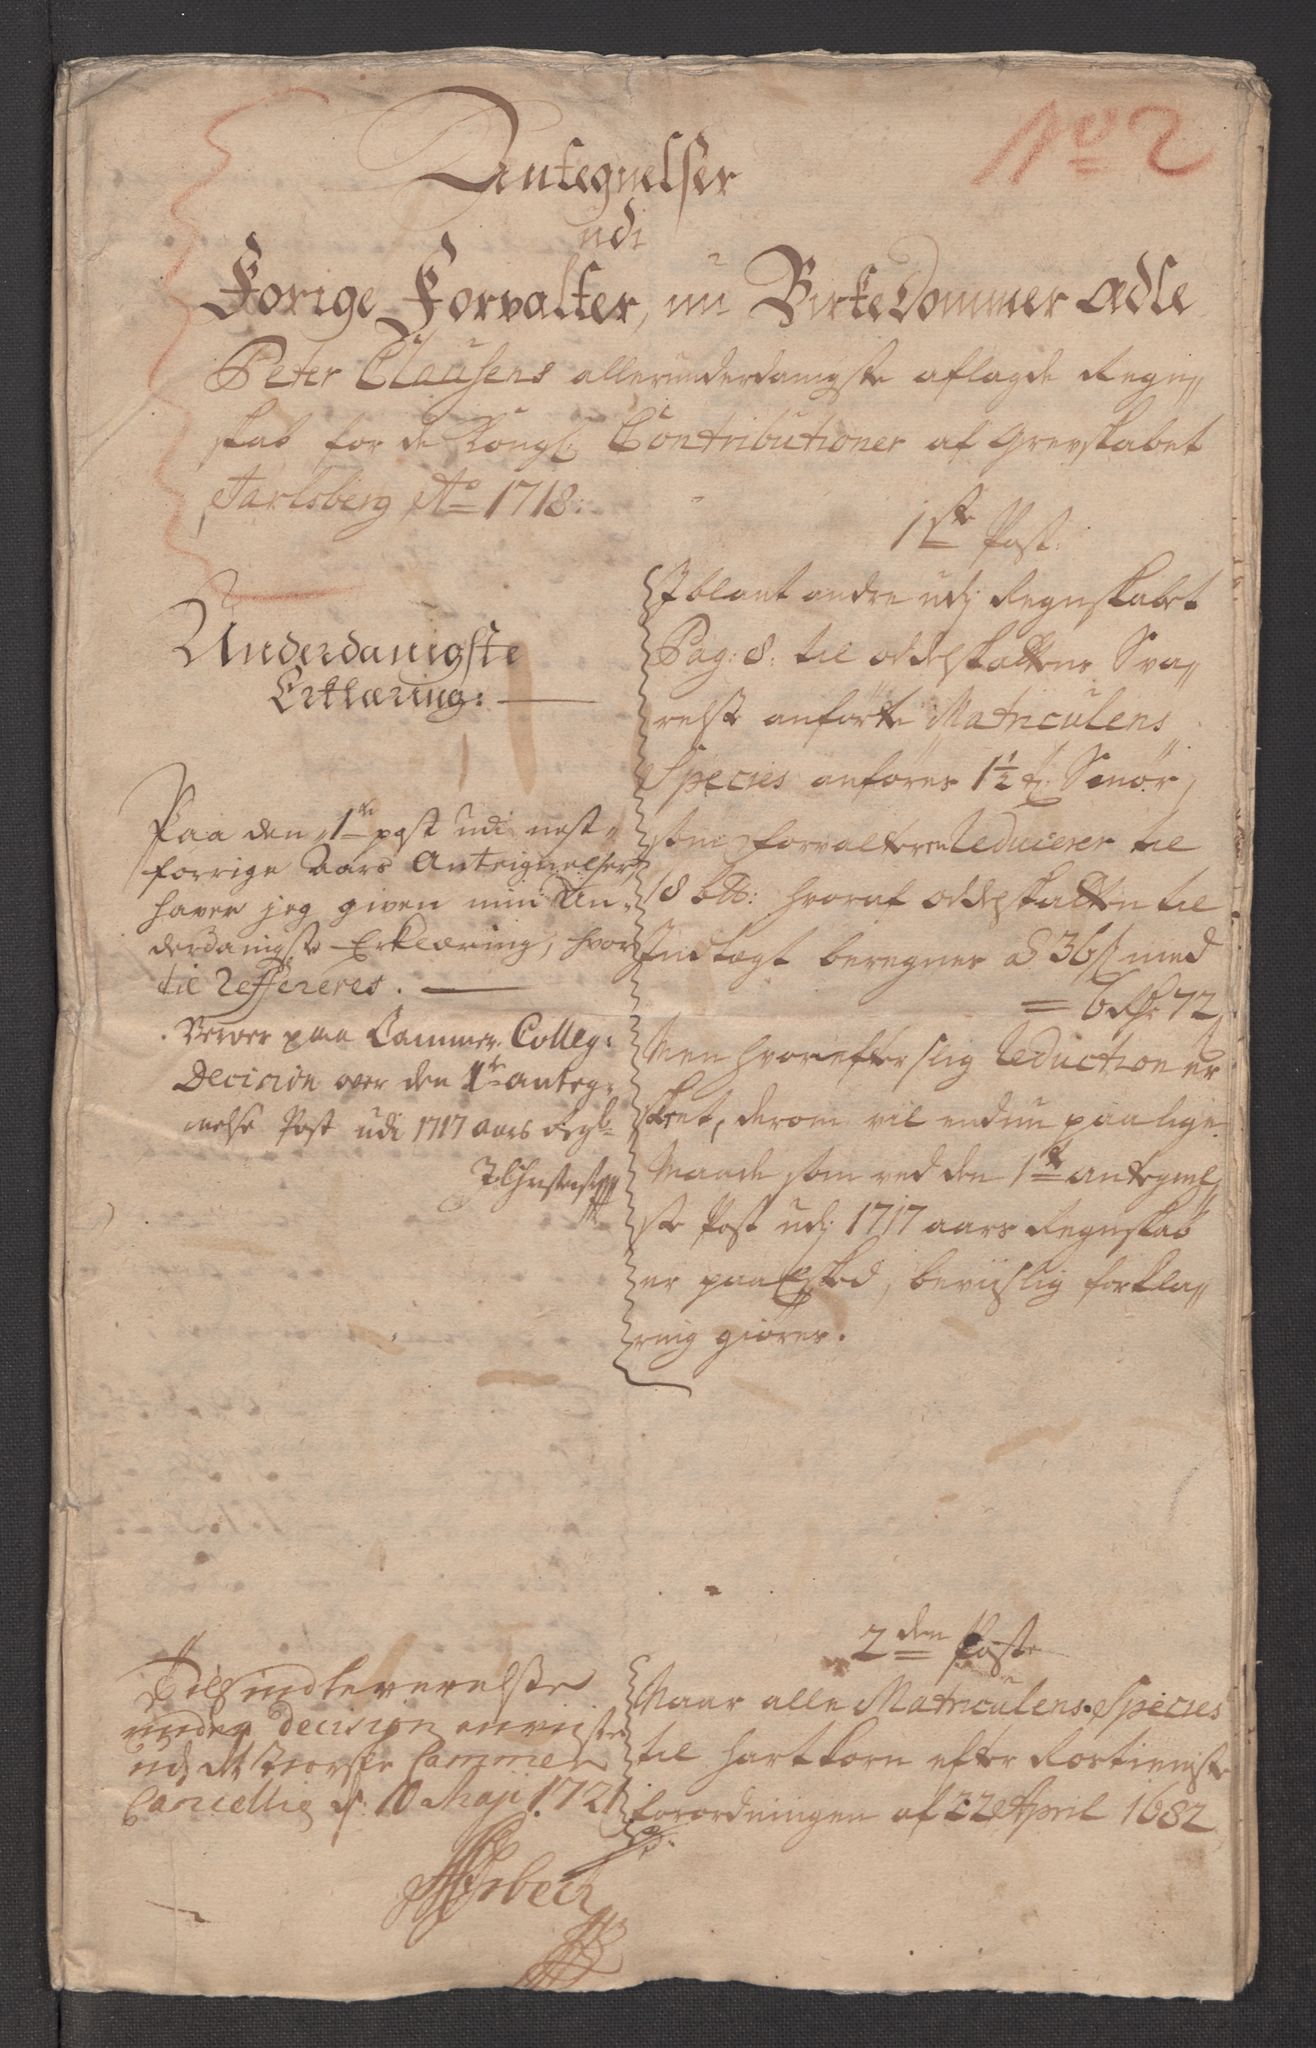 No 2
Antegnelser
udi
Forige Forvalter, nu Birkedommer Adle
Peter Clausens allerunderdanigste aflagde Regn„
skab for de Kongl: Contributioner af Grevskabet
Jarlsberg Ao 1718:
1ste Post:
Iblant andre udj Regnskabet
Pag: 8: til oddelskattens Sva„
relse anførte Matriculens
Species anføres 1½ Smør,
som Forvalteren reducerer til
18 hvoraf oddelskatten til
Indtægt beregnes a 36 med
= 6 72
Men hvorefter slig reduction er
skeet, derom vil endnu paa lige
Maade som ved den 1ste antegnel„
se Post udj 1717 aars Regnskab
er paaesked, beviislig forkla„
ring giøres.
Underdanigste
Erklæring:
Paa den 1te post udi nest„
forrige Aars Anteignelser,
haver jeg given min Un„
derdanigste Erklæring, hvor
til Reffereres.
Beroer paa Cammer Colleg:
Decision over den 1te anteg„
nelse Post udi 1717 aars
2den Post
Naar alle Matriculens Species
til hartkorn efter
forordningen af 22 April 1682
Til indleverelse
under decision
udj det Norske Cammer
Cancellie d: 10 Maji 1721